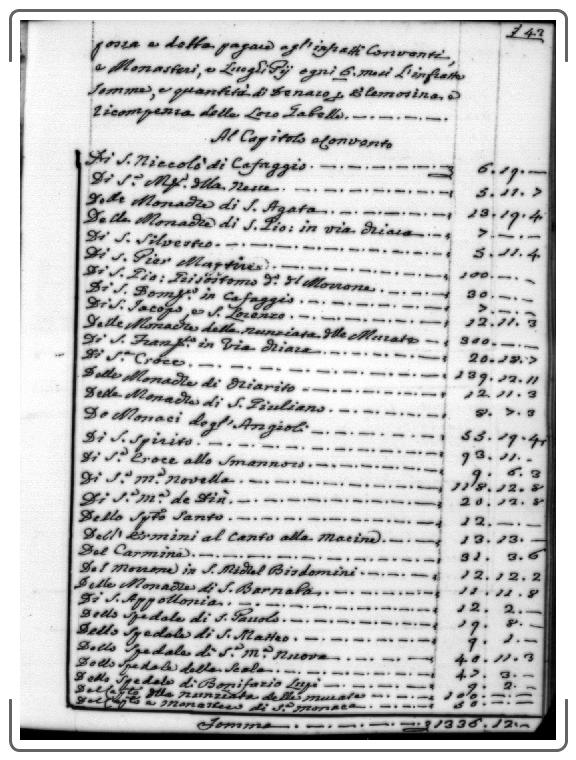 142
possa e debba pagare agl'infratti Conventi,
e Monasteri, e Luoghi Pij ogni 6. mesi l'infratte
somme, e quantità di Denaro p Elemosina e
ricompensa delle Loro Gabelle
Al Capitolo e Convento
Di S. Niccolò di Cafaggio 6. 19. —
Di S.ª Mª. dlla Neve 5. 11. 7
Delle Monache di S. Agata 13. 19. 4
Delle Monache di S. Gio: in via chiara 7
Di S. Silvestro 5. 11. 4
Di S. Pier Martire 100
Di S. Gio: Grisostomo dº. dl Morrone 30
Di S. Dom.co in Cafaggio 7
Di S. Jacopo, e S. Lorenzo 12. 11. 3
Delle Monache della nunziata dlle Murate 300
Di S. Fran.co in Via chiara 20. 18. 7
Di S.ª Croce 139. 12. 11
Delle Monache di chiarito 12. 11. 3
Delle Monache di S. Giuliano 8. 7. 3
De Monaci degl'Angioli 55. 19. 4
Di S. Spirito 93. 11. —
Di S.ª Croce allo Smannoro 9. 6. 3
Di S.ª mª. novella 118. 12. 8
Di S.ª mª. de 20. 12. 8
Dello Spto Santo 12
Dell'Ermini al Canto alla macine 13. 13. —
Del Carmine 31. 3. 6
Del morrone in S. Michel Bisdomini 12. 12. 2
Delle Monache di S. Barnaba 11. 11. 8
Di S. Appollonia 12. 2. —
Dello Spedale di S. Pavolo 19. 8. —
Dello Spedale di S. Matteo 9. 1. —
Dello Spedale di S.ª mª. Nuova 40. 11. 3
Dello Spedale della Scala 47. 3. —
Dello Spedale di Bonifazio Lupi 9. 2. —
dlla nunziata delle murate 109
e monastero di S.ª monaca 60
Somma 1336. 12. —